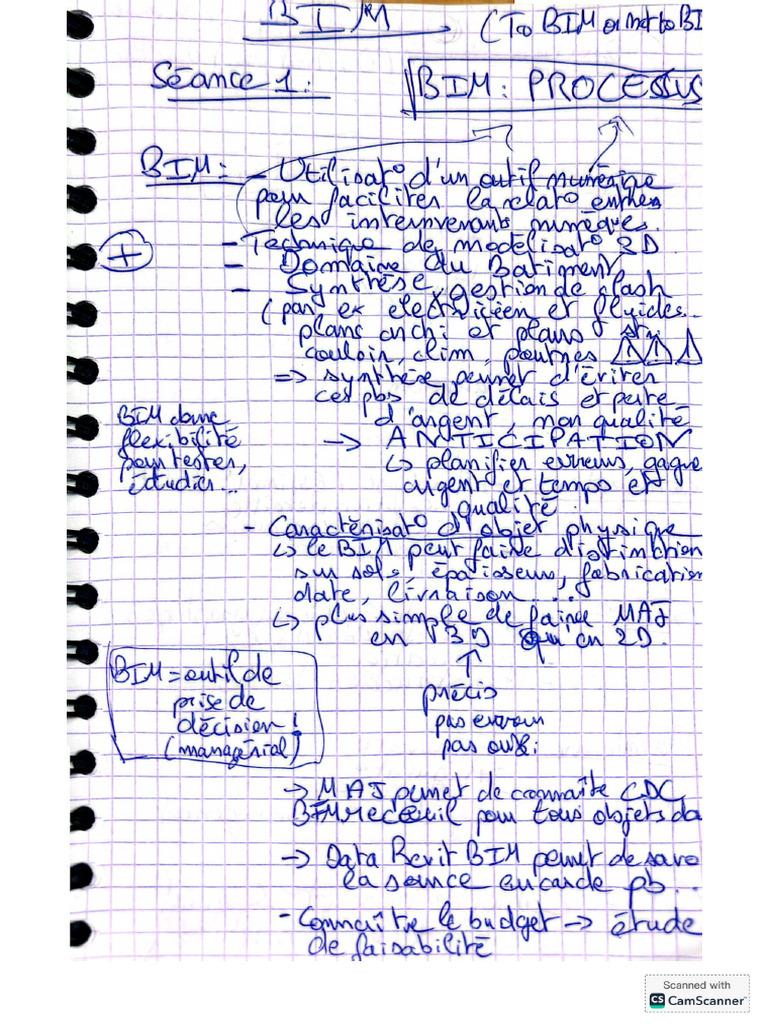 BIM → (To BIM or not to BI
Séance 1 :
BIM : PROCESSUS
BIM : - Utilisat° d'un outil numérique
pour faciliter la relat° entre
les intervenants numériques.
+
- Technique de modélisat° 3D.
- Domaine du Batiment
- Synthèse, gestion de clash
(par ex electricien et fluides...
plans archi et plans
couloir, clim, poutres
=> synthèse permet d'éviter
ces pbs de délais et perte
d'argent, non qualité
BIM donne
flexibilité
pour tester,
étudier...
→ ANTICIPATION
↳ planifier erreurs, gagne
argent et temps et
qualité.
- Caractérisat° d'objet physique
↳ le BIM peut faire distinction
sur sols, épaisseurs, fabrication
date, livraison...
↳ plus simple de faire MAJ
en 3D qu'en 2D.
↑
BIM = outil de
prise de
décision !
(managérial)
précis
pas erreur
pas
→ MAJ permet de connaîte CDC
BIM receuil pour tous objets da
→ Data Revit BIM permet de savo
la source en cas de pb...
- Connaître le budget → étude
de faisabilité
Scanned with
CS CamScanner